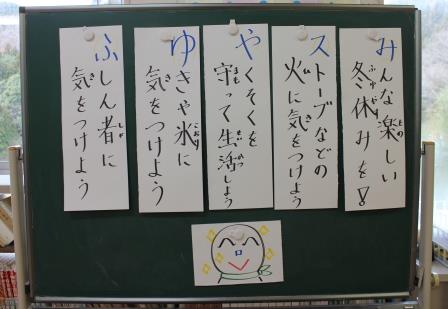 みんな楽しい
冬休みを!
ストーブなどの
火に気をつけよう
やくそくを
守って生活しよう
ゆきや氷に
気をつけよう
ふしん者に
気をつけよう